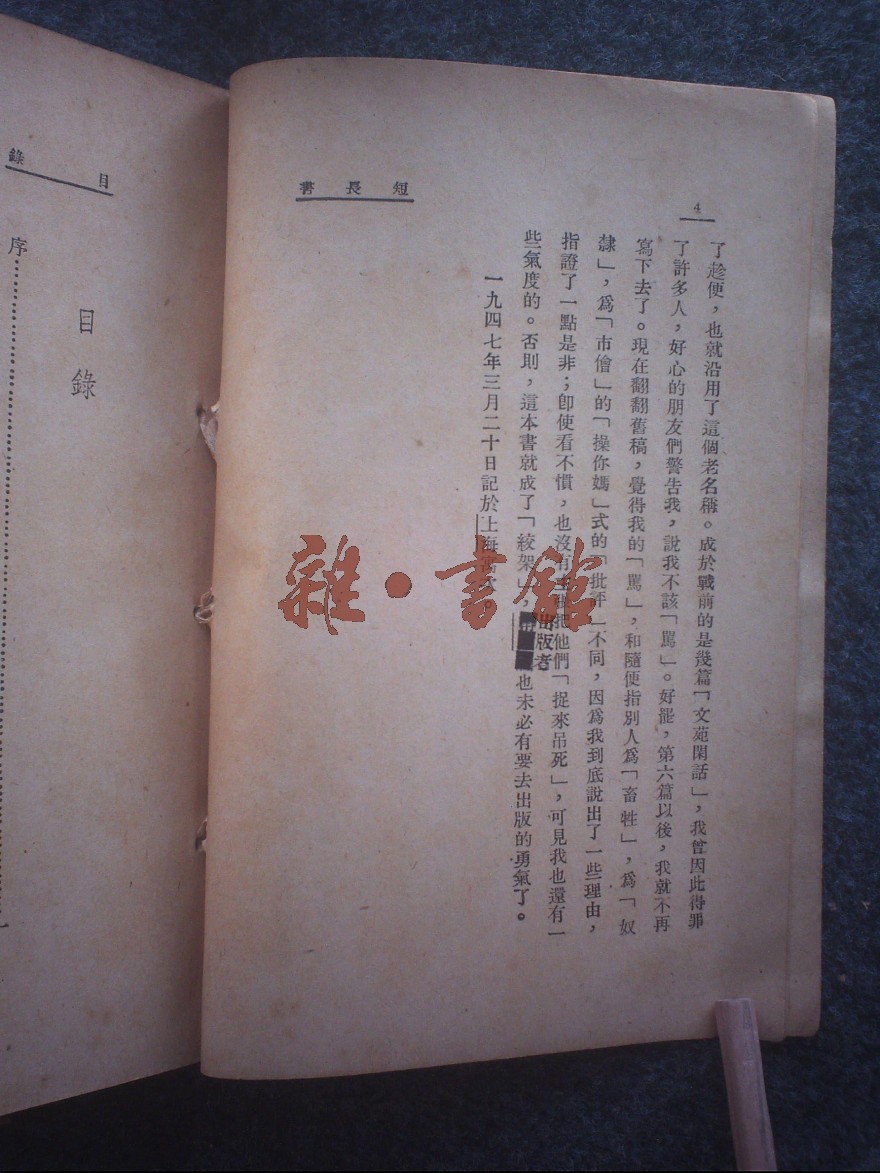 短長書
4
了趁便，也就沿用了這個老名稱。成於戰前的是幾篇「文苑閑話」，我曾因此得罪
了許多人，好心的朋友們警告我，說我不該「罵」。好罷，第六篇以後，我就不再
寫下去了。現在翻翻舊稿，覺得我的「罵」，和隨便指別人爲「畜牲」，爲「奴
隸」，爲「市儈」的「操你媽」式的「批評」不同，因爲我到底說出了一些理由，
指證了一點是非；卽使看不慣，也沒有主張把他們「捉來吊死」，可見我也還有一
些氣度的。否則，這本書就成了「絞架」，出版者也未必有要去出版的勇氣了。
一九四七年三月二十日記於上海
目錄
目錄
序
雜·書館